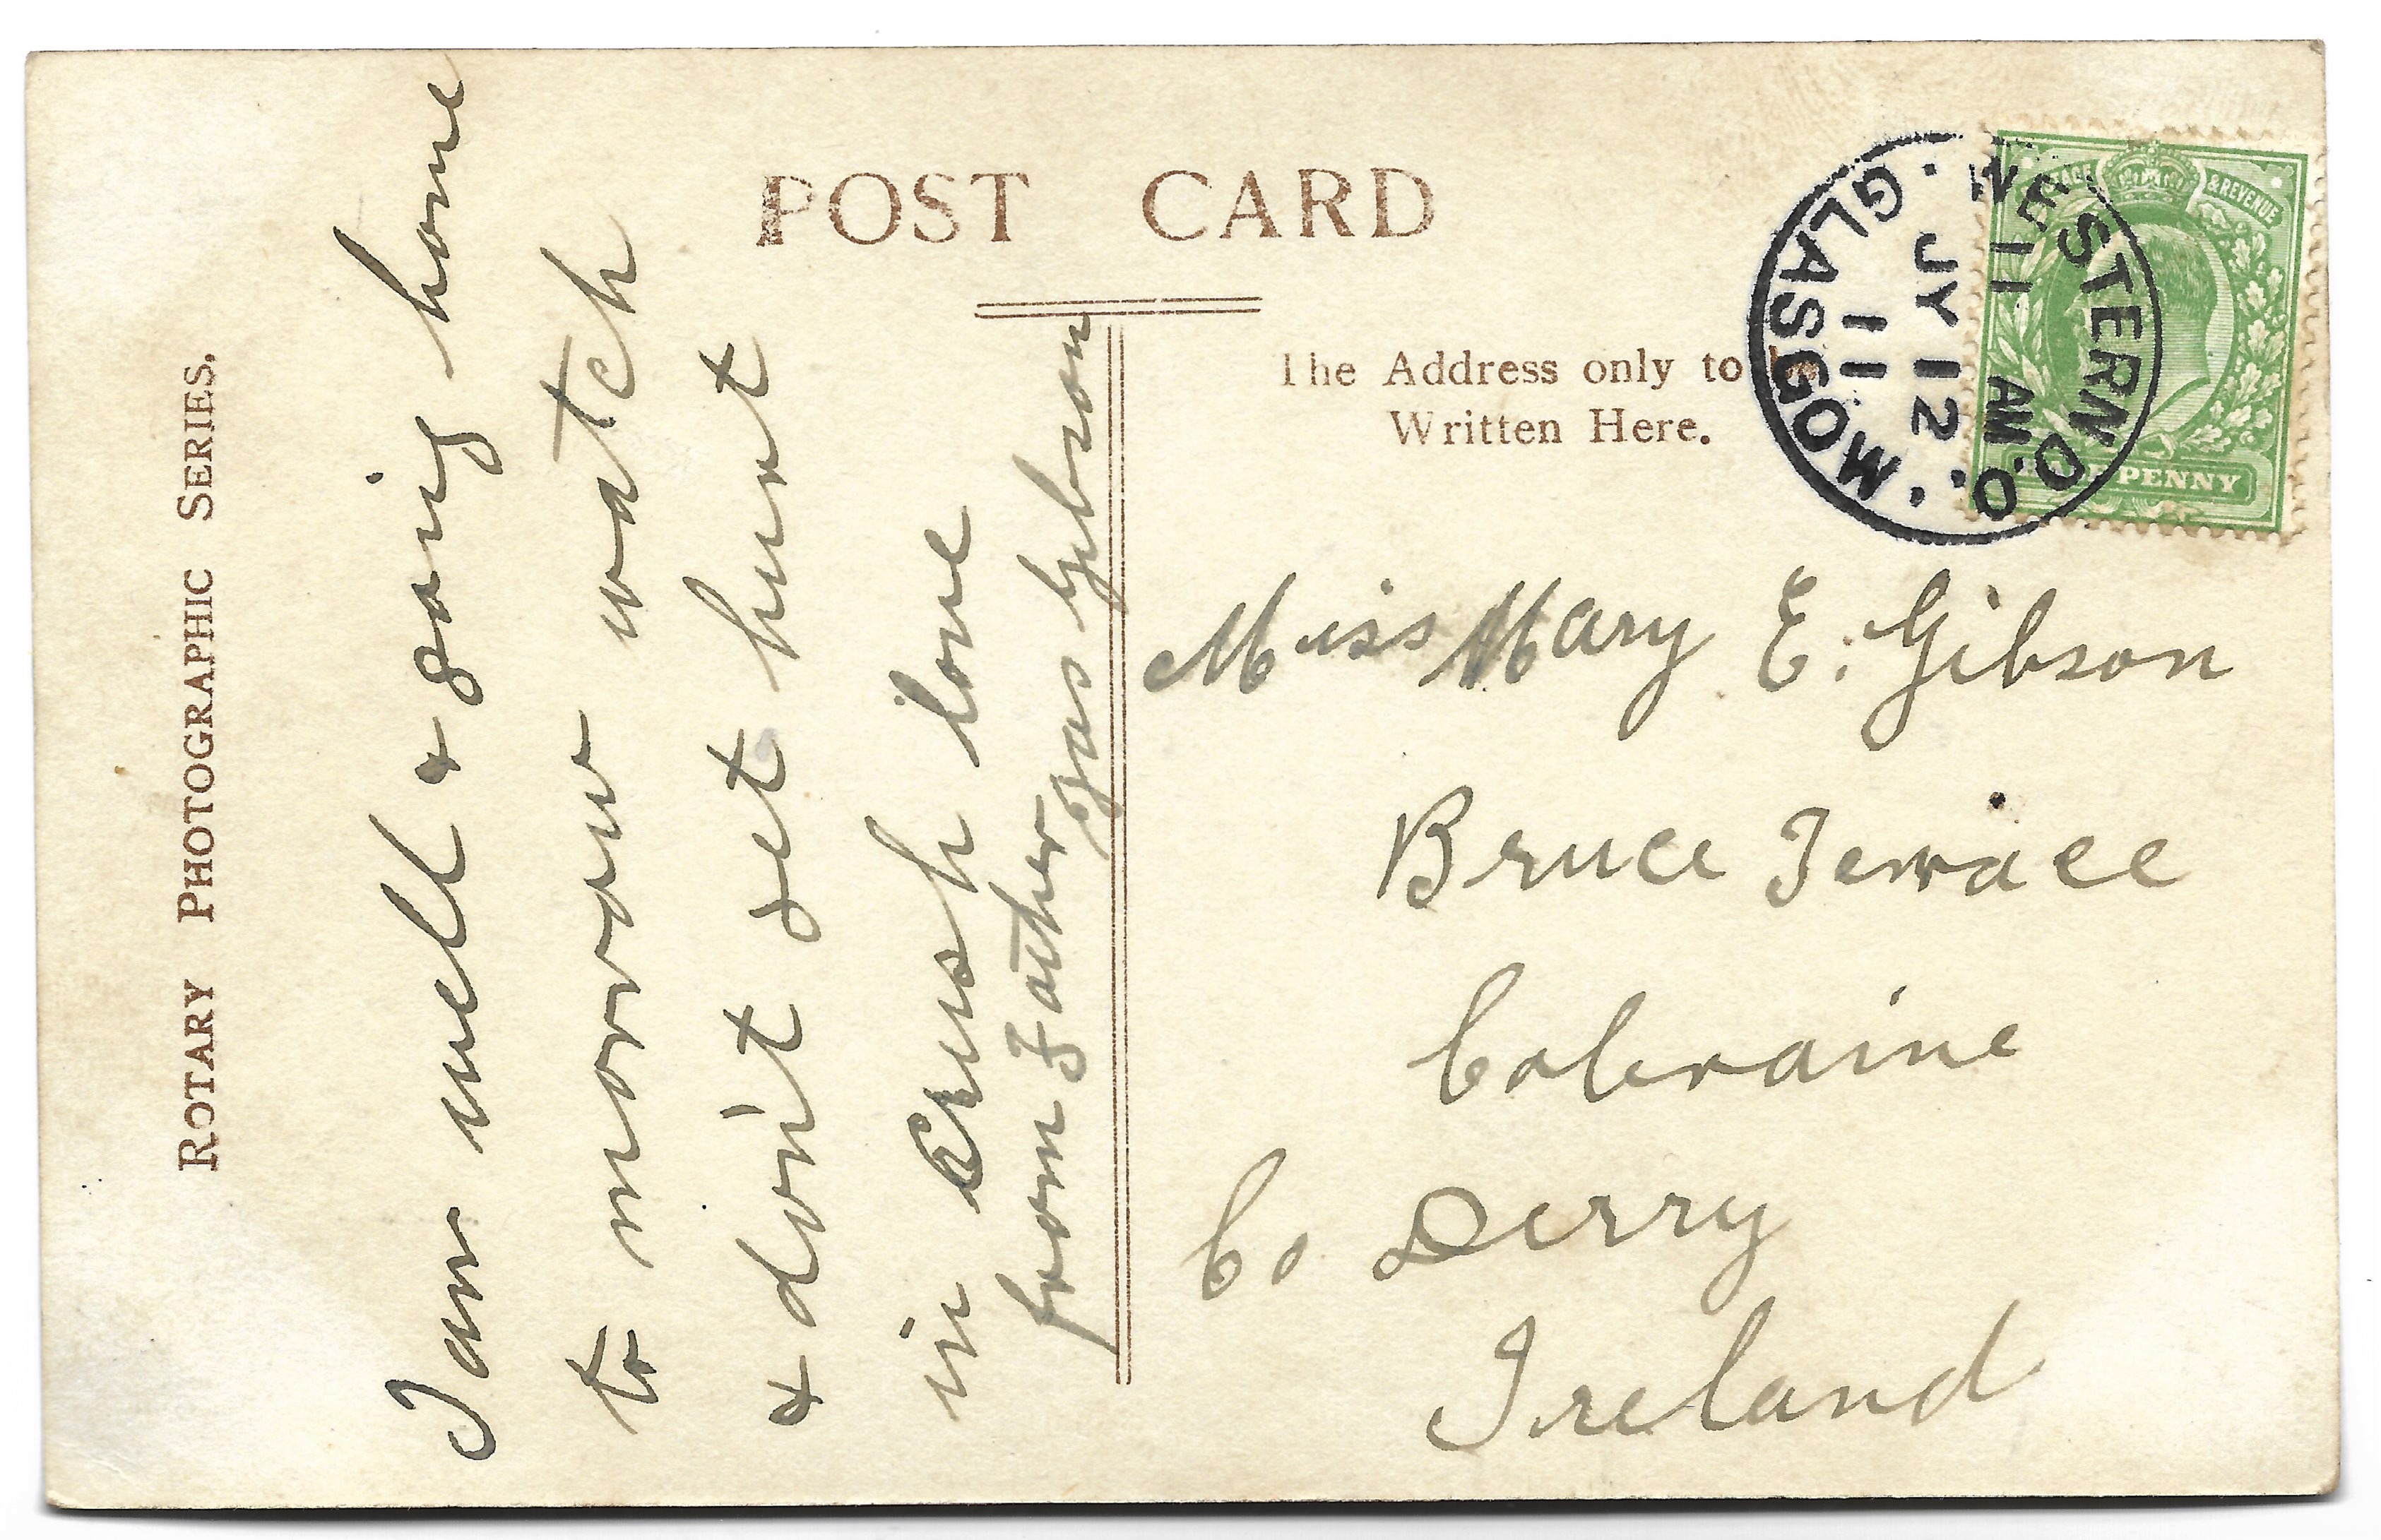 POST CARD
ROTARY PHOTOGRAPHIC SERIES.
The Address only to be
Written Here.
WESTERN D.O.
11 AM
JY 12
11
GLASGOW
& REVENUE
PENNY
I am well & going home
to morrow watch
& don't get hurt
in crush love
from Father Jas Gibson
Miss Mary E. Gibson
Bruce Terrace
Coleraine
Co Derry
Ireland